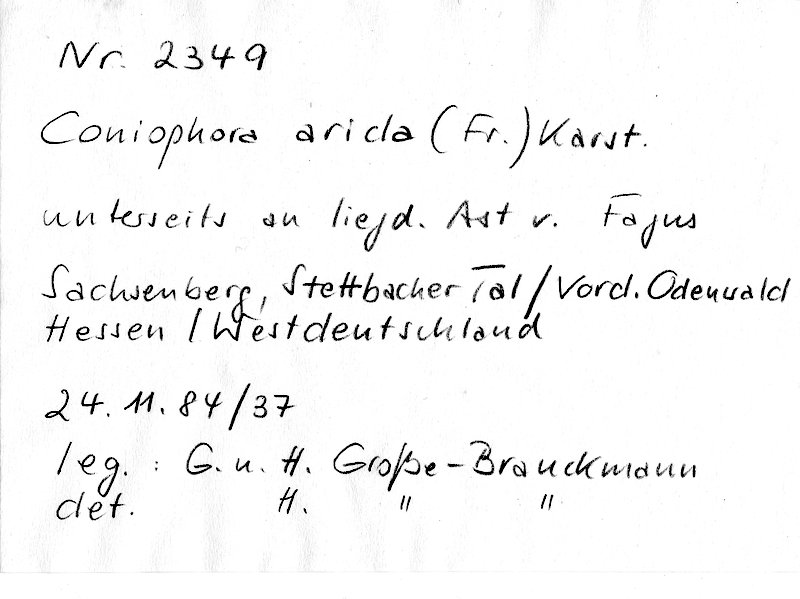 Nr. 2349
Coniophora arida (Fr.) Karst.
unterseits an liegd. Ast v. Fagus
Sachsenberg, Stettbacher Tal / Vord. Odenwald
Hessen / Westdeutschland
24. 11. 84/37
leg. : G. u. H. Große-Brauckmann
det. H. " "